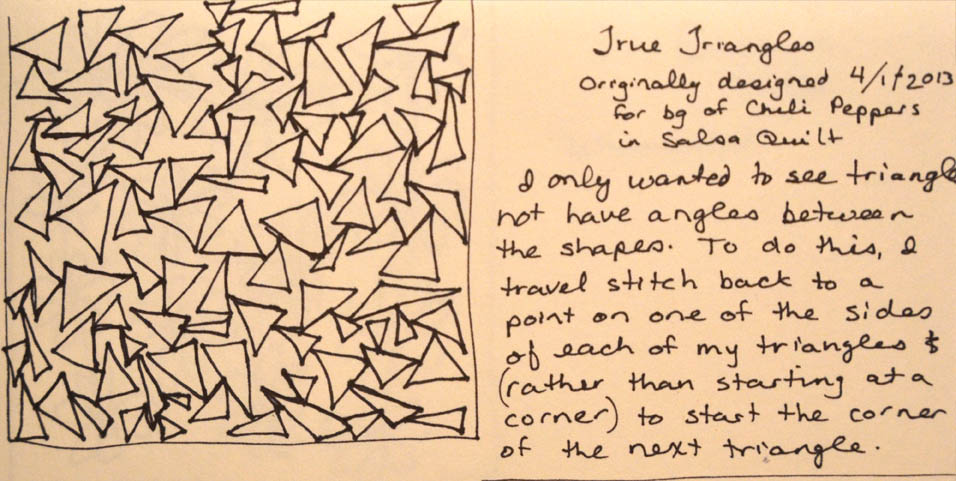 True Triangles
Originally designed 4/1/2013
for bg of Chili Peppers
in Salsa Quilt
I only wanted to see triangle
not have angles between
the shapes. To do this, I
travel stitch back to a
point on one of the sides
of each of my triangles &
(rather than starting at a
corner) to start the corner
of the next triangle.